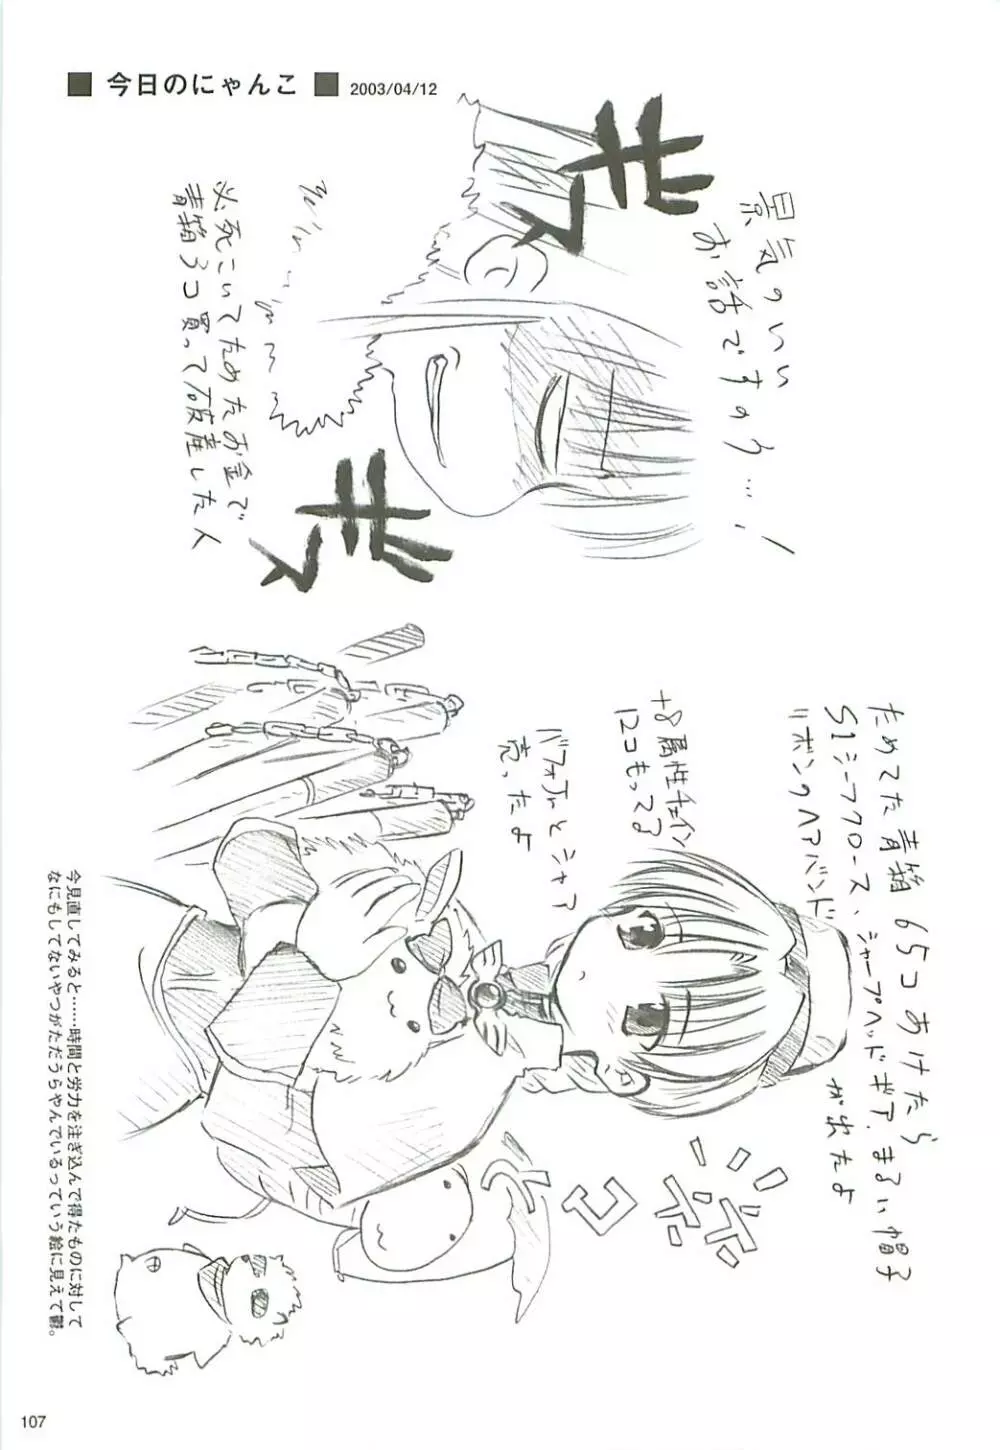 ■ 今日のにゃんこ ■ 2003/04/12
景気のいい
お話ですのう…!
ギス
必死こいてためたお金で
青箱3コ買って破産した人
ギス
ためてた青箱 65コあけたら
S1シーフクロース、シャープヘッドギア、まるい帽子
リボンのヘアバンド
が出たよ
+8属性チェイン
12コもってる
バフォ帽とシャア
売ったよ
ホ
ホ
コ
今見直してみると……時間と労力を注ぎ込んで得たものに対して
なにもしてないやつがただうらやんでいるっていう絵に見えて鬱。
107